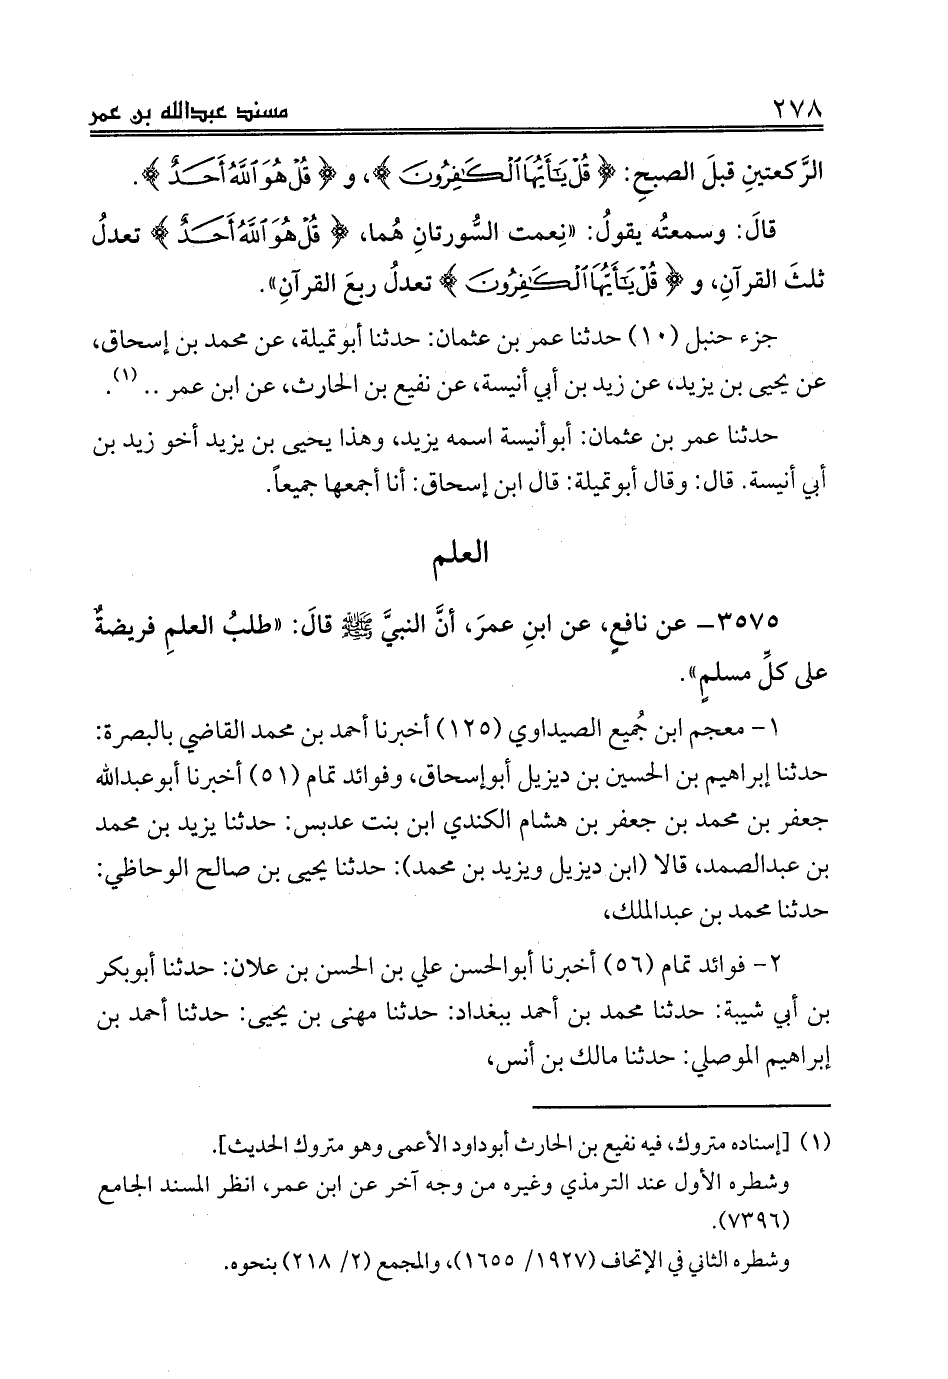 ٢٧٨ مسند عبدالله بن عمر
الرَّكعتينِ قبلَ الصبحِ: ﴿ قُلْ يَٰٓأَيُّهَا ٱلْكَٰفِرُونَ ﴾، و ﴿ قُلْ هُوَ ٱللَّهُ أَحَدٌ ﴾.
قالَ: وسمعتُه يقولُ: «نِعمت السُّورتانِ هُما، ﴿ قُلْ هُوَ ٱللَّهُ أَحَدٌ ﴾ تعدلُ
ثلثَ القرآنِ، و ﴿ قُلْ يَٰٓأَيُّهَا ٱلْكَٰفِرُونَ ﴾ تعدلُ ربعَ القرآنِ».
جزء حنبل (١٠) حدثنا عمر بن عثمان: حدثنا أبوتميلة، عن محمد بن إسحاق،
عن يحيى بن يزيد، عن زيد بن أبي أنيسة، عن نفيع بن الحارث، عن ابن عمر .. (١).
حدثنا عمر بن عثمان: أبوأنيسة اسمه يزيد، وهذا يحيى بن يزيد أخو زيد بن
أبي أنيسة. قال: وقال أبوتميلة: قال ابن إسحاق: أنا أجمعها جميعاً.
العلم
٣٥٧٥– عن نافعٍ، عن ابنِ عمرَ، أنَّ النبيَّ ﷺ قالَ: «طلبُ العلمِ فريضةٌ
على كلِّ مسلمٍ».
١– معجم ابن جُميع الصيداوي (١٢٥) أخبرنا أحمد بن محمد القاضي بالبصرة:
حدثنا إبراهيم بن الحسين بن ديزيل أبوإسحاق، وفوائد تمام (٥١) أخبرنا أبوعبدالله
جعفر بن محمد بن جعفر بن هشام الكندي ابن بنت عدبس: حدثنا يزيد بن محمد
بن عبدالصمد، قالا (ابن ديزيل ويزيد بن محمد): حدثنا يحيى بن صالح الوحاظي:
حدثنا محمد بن عبدالملك،
٢– فوائد تمام (٥٦) أخبرنا أبوالحسن علي بن الحسن بن علان: حدثنا أبوبكر
بن أبي شيبة: حدثنا محمد بن أحمد ببغداد: حدثنا مهنى بن يحيى: حدثنا أحمد بن
إبراهيم الموصلي: حدثنا مالك بن أنس،
(١) [إسناده متروك، فيه نفيع بن الحارث أبوداود الأعمى وهو متروك الحديث].
وشطره الأول عند الترمذي وغيره من وجه آخر عن ابن عمر، انظر المسند الجامع
(٧٣٩٦).
وشطره الثاني في الإتحاف (١٩٢٧/ ١٦٥٥)، والمجمع (٢/ ٢١٨) بنحوه.